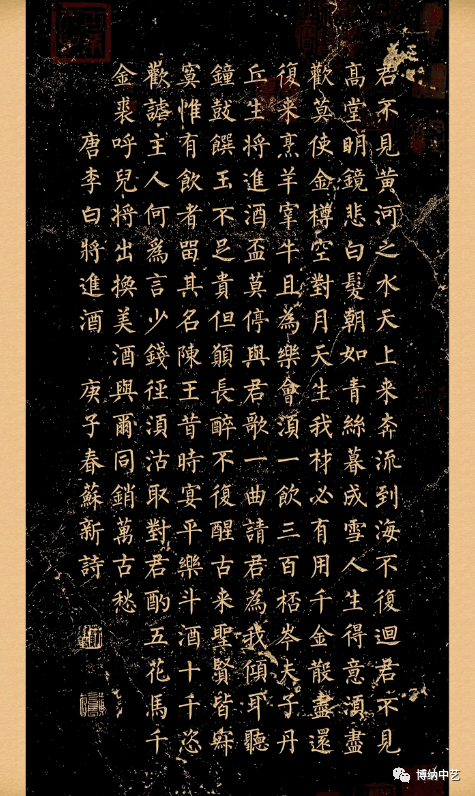 君不見黃河之水天上来奔流到海不復迴君不見
高堂明鏡悲白髮朝如青絲暮成雪人生得意湏盡
歡莫使金樽空對月天生我材必有用千金散盡還
復来烹羊宰牛且為樂會湏一飲三百桮岑夫子丹
丘生將進酒盃莫停與君歌一曲請君為我傾耳聽
鐘鼔饌玉不足貴但願長醉不復醒古来聖賢皆寂
寞惟有飲者留其名陳王昔時宴平樂斗酒十千恣
歡謔主人何為言少錢徑湏沽取對君酌五花馬千
金裘呼兒將出換美酒與爾同銷萬古愁
唐李白將進酒 庚子春蘇新詩
博纳中艺